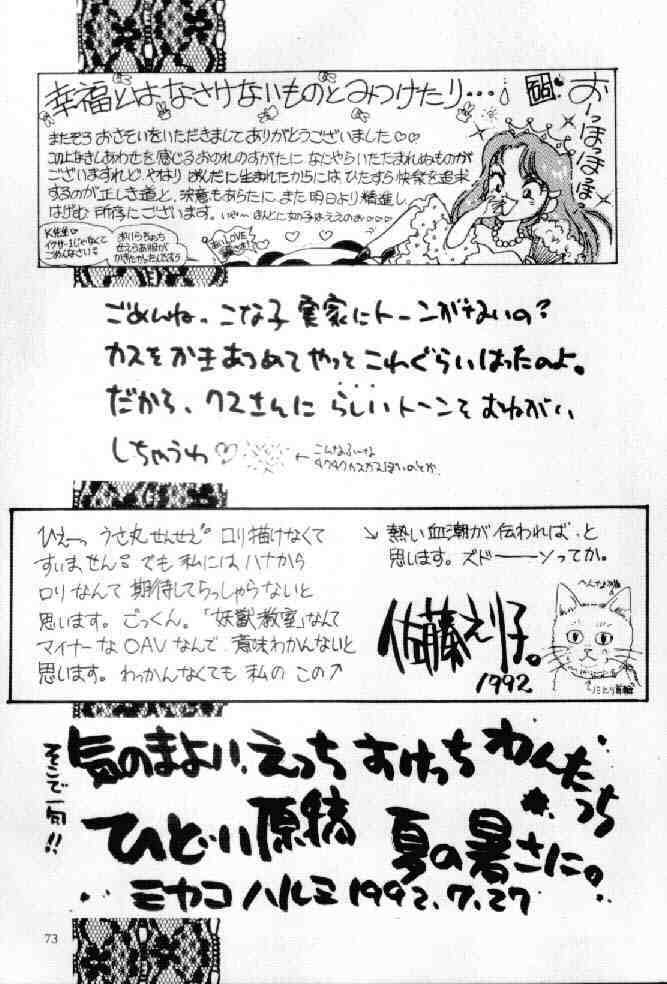 幸福とは、なさけないものとみつけたり…
お〜っほっほっほ
またぞろ おさそいをいただきまして ありがとうございました♡♡
このよなきしあわせを感じる おのれのすがたに なにやらいたたまれぬものが
ございますれど、やはり おんなに生まれたからには ひたすら快楽を追求
するのが正しき道と、決意もあらたに、また明日より精進し
はげむ所存にございます。いや〜ほんとに女の子はええのお
K先生
イクサー1じゃなくて
ごめんなさい
ごめんね、こな子 実家にトーンがないの?
カスをかきあつめてやっとこれぐらいはったのよ。
だから、クスさんに らしいトーンを おねがい
しちゃうわ♡
←こんなふーな
ひえーっ うさ丸せんせえ ロリ描けなくて
すいません でも私にはハナから
ロリなんて期待してらっしゃらないと
思います。ごっくん。「妖獣教室」なんて
マイナーなOAVなんで、意味わかんないと
思います。わっかんなくても 私の この↗
↘ 熱い血潮が伝われば、と
思います。ズドーーーンってか。
佐藤えり子。
1992
そこで一句!!
気のまよい、えっち おけっち わんたっち
ひどい原稿 夏の暑さに。
ミヤコ ハルミ 1992.7.27
73